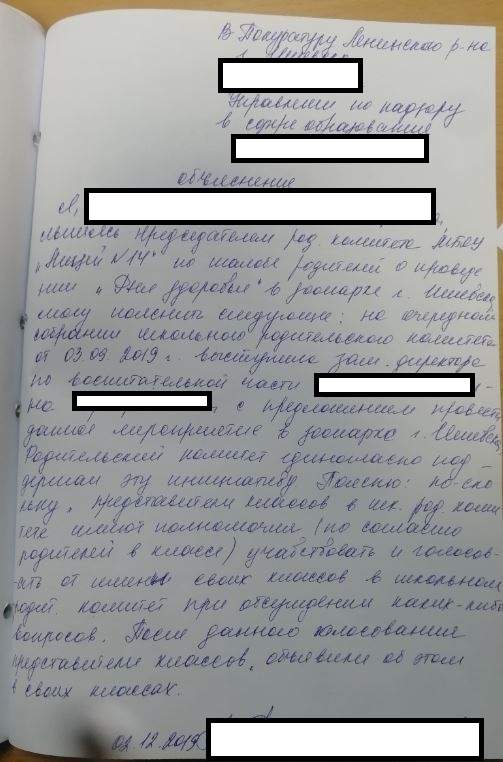 В Прокуратуру Ленинского р-на
г. Ижевска
Управление по надзору
в сфере образования
объяснение
Я,
являюсь председателем род. комитета МБОУ
"Лицей №14" по жалобе родителей о проведе
нии "Дня здоровья" в зоопарке г. Ижевска,
могу пояснить следующее: на очередном
собрании школьного родительского комитета
от 03.09.2019 г. выступила зам. директора
по воспитательной части
на с предложением провести
данное мероприятие в зоопарке г. Ижевска,
Родительский комитет единогласно под-
держал эту инициативу. Поясню: поско
льку, представители классов в шк. род. коми
тете имеют полномочия (по согласию
родителей в классе) участвовать и голосов-
ать от имени своих классов в школьном
родит. комитет при обсуждении каких-либо
вопросов. После данного голосования
представители классов, объявили об этом
в своих классах.
02.12.2019